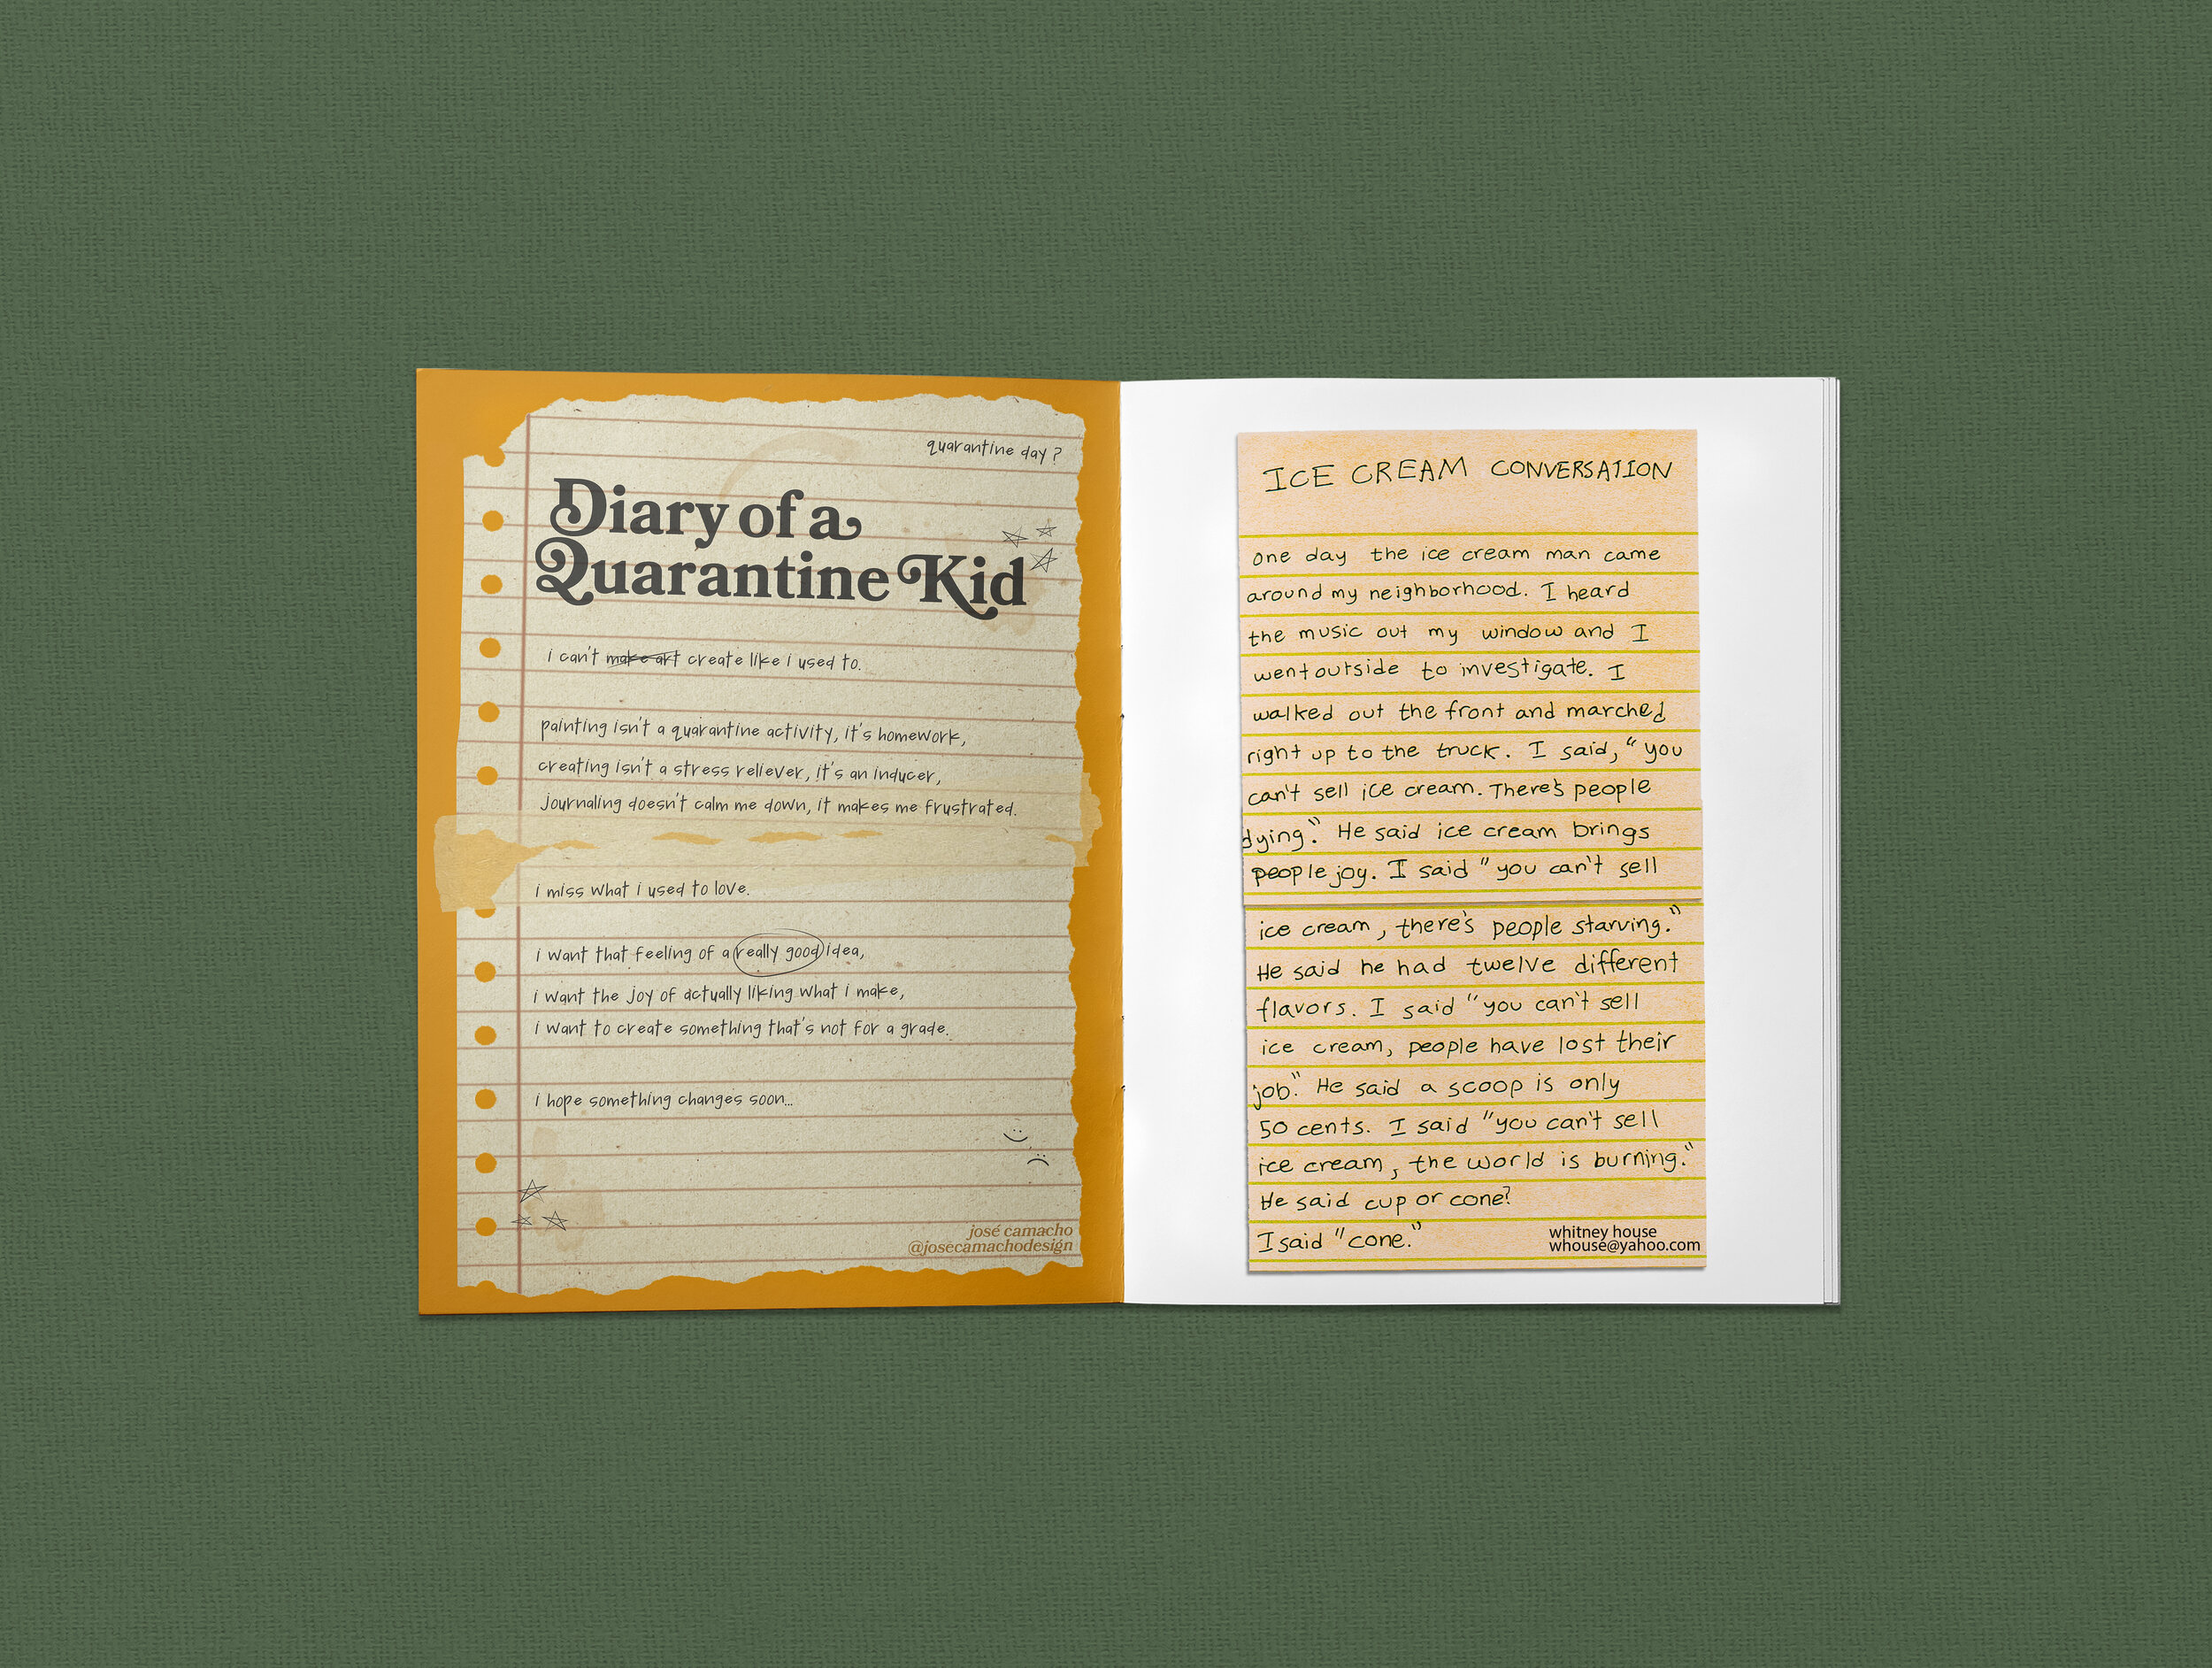 quarantine day ?
Diary of a
Quarantine Kid
i can't make art create like i used to.
painting isn't a quarantine activity, it's homework,
creating isn't a stress reliever, it's an inducer,
journaling doesn't calm me down, it makes me frustrated.
i miss what i used to love.
i want that feeling of a really good idea,
i want the joy of actually liking what i make,
i want to create something that's not for a grade.
i hope something changes soon...
josé camacho
@josecamachodesign
ICE CREAM CONVERSATION
one day the ice cream man came
around my neighborhood. I heard
the music out my window and I
went outside to investigate. I
walked out the front and marched
right up to the truck. I said, "you
can't sell ice cream. There's people
dying." He said ice cream brings
people joy. I said "you can't sell
ice cream, there's people starving."
He said he had twelve different
flavors. I said "you can't sell
ice cream, people have lost their
job." He said a scoop is only
50 cents. I said "you can't sell
ice cream, the world is burning."
He said cup or cone?
I said "cone."
whitney house
whouse@yahoo.com